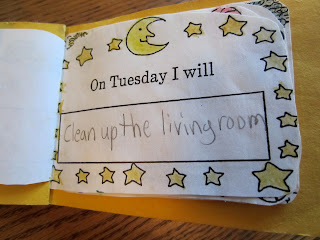 On Tuesday I will
Clean up the living room